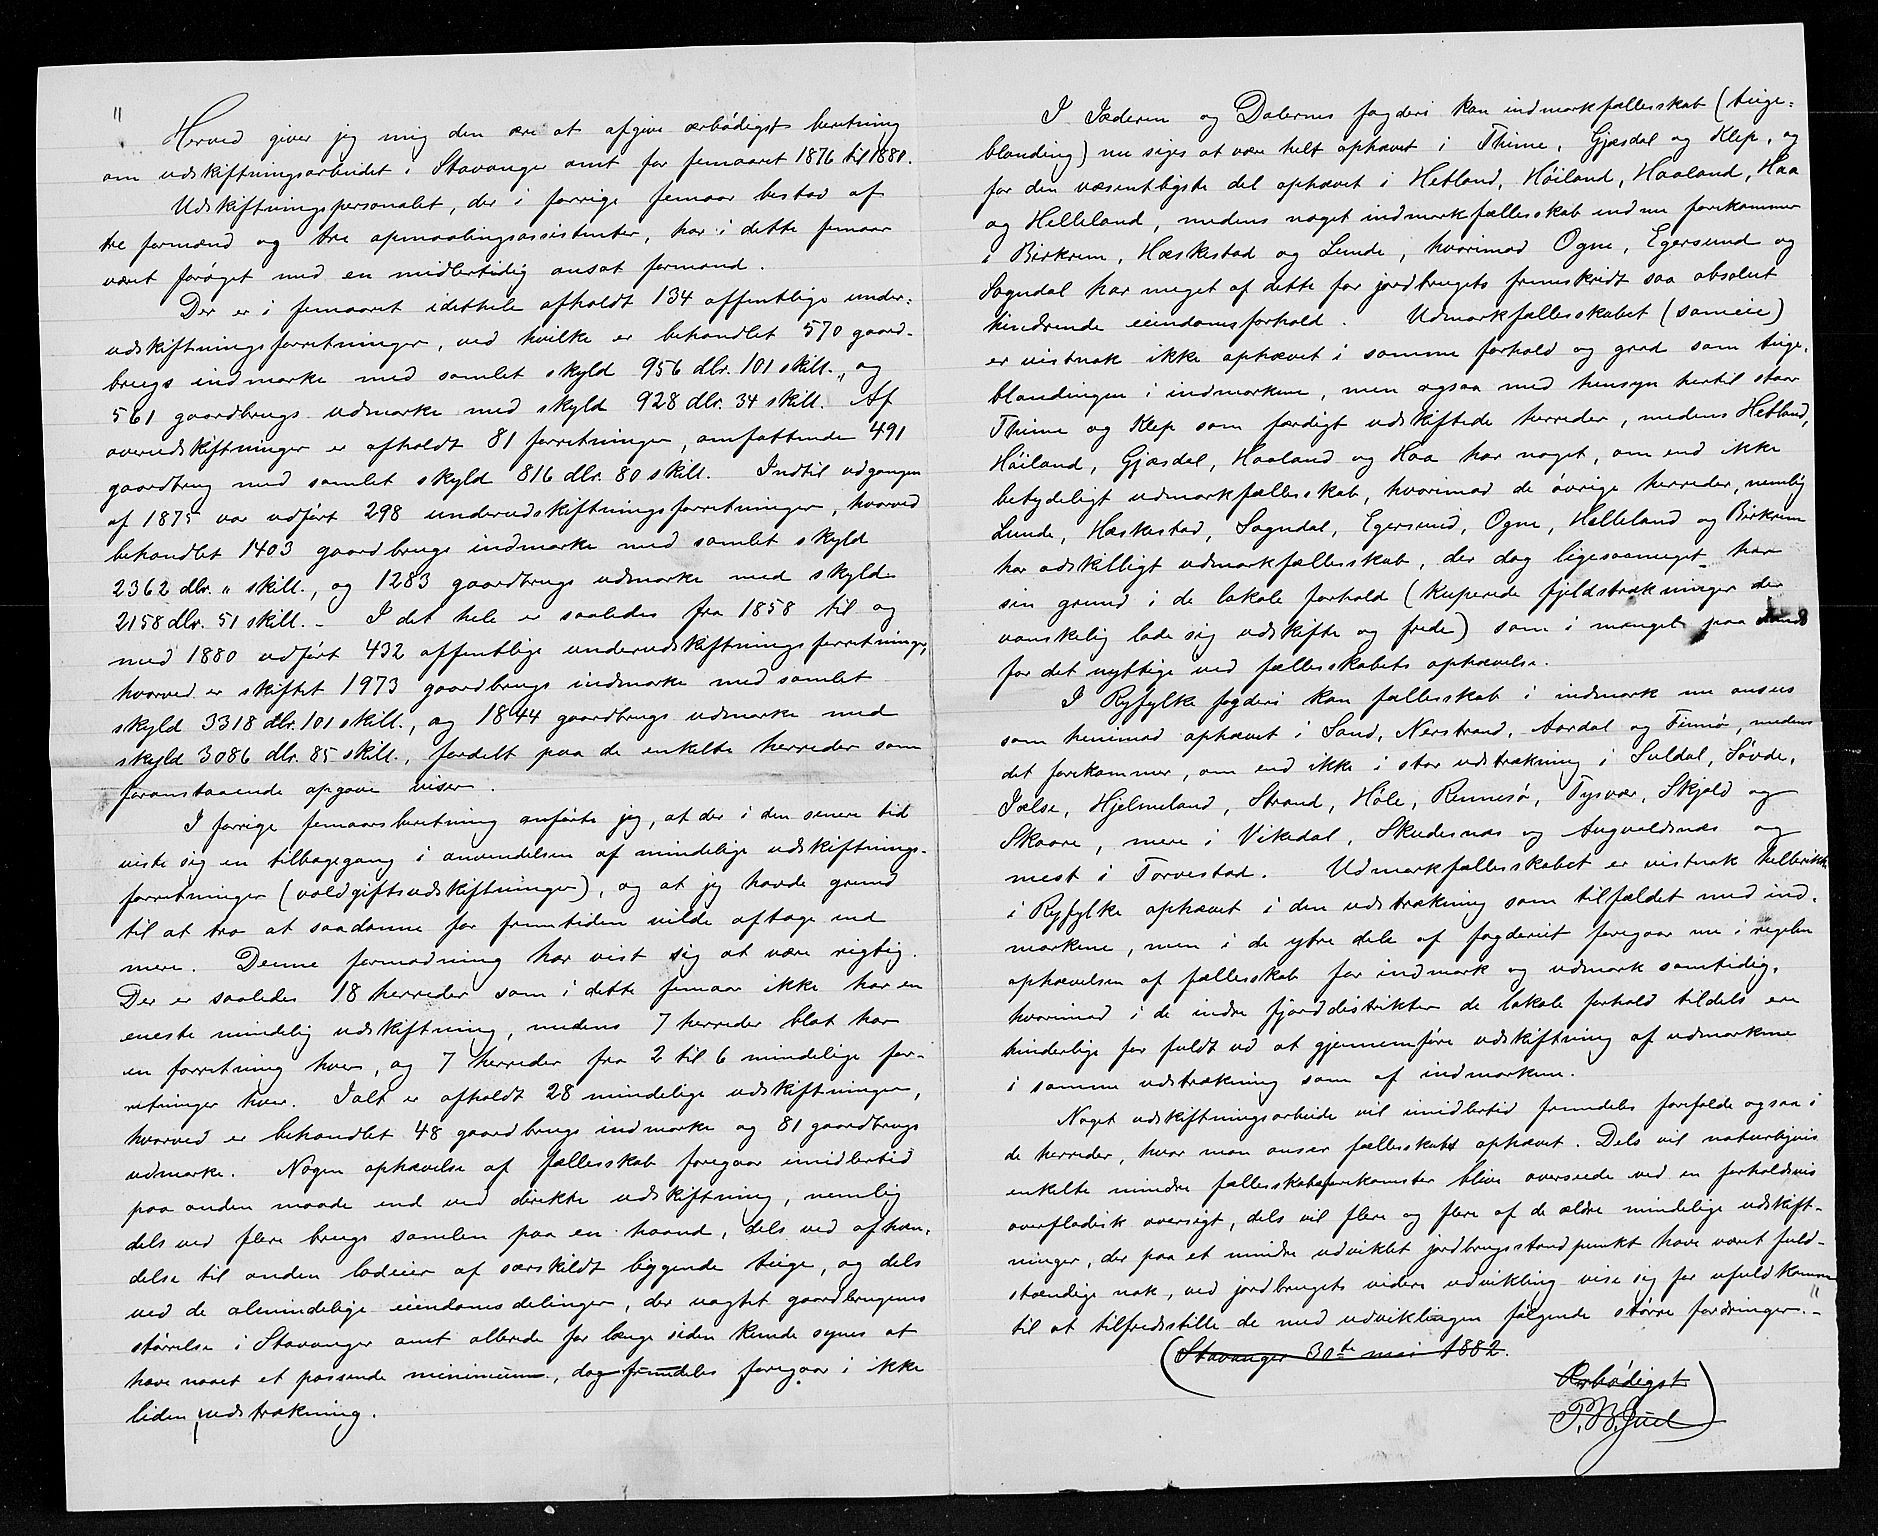 "
Herved giver jeg mig den ære at afgive ærbødigst beretning
om udskiftningsarbeidet i Stavanger amt for femaaret 1876 til 1880.
Udskiftningspersonalet, der i forrige femaar bestod af
tre formænd og tre opmaalingsassistenter, har i dette femaar
været forøget med en midlertidig ansat formand.
Der er i femaaret idethele afholdt 134 offentlige under-
udskiftningsforretninger, ved hvilke er behandlet 570 gaard-
brugs indmarke med samlet skyld 956 dlr. 101 skill., og
561 gaardbrugs udmarke med skyld 928 dlr. 34 skill. Af
overudskiftninger er afholdt 81 forretninger, omfattende 491
gaardbrug med samlet skyld 816 dlr. 80 skill. Indtil udgangen
af 1875 var udført 298 underudskiftningsforretninger, hvorved
behandlet 1403 gaardbrugs indmarke med samlet skyld
2362 dlr. " skill., og 1283 gaardbrugs udmarke med skyld
2158 dlr. 51 skill. - I det hele er saaledes fra 1858 til og
med 1880 udført 432 offentlige underudskiftningsforretninger,
hvorved er skiftet 1973 gaardbrugs indmarke med samlet
skyld 3318 dlr. 101 skill., og 1844 gaardbrugs udmarke med
skyld 3086 dlr. 85 skill., fordelt paa de enkelte herreder som
foranstaaende opgave viser.
I forrige femaarsberetning anførte jeg, at der i den senere tid
viste sig en tilbagegang i anvendelsen af mindelige udskiftnings-
forretninger (voldgiftsudskiftninger), og at jeg havde grund
til at tro at saadanne for fremtiden vilde aftage end
mere. Denne formodning har vist sig at være rigtig.
Der er saaledes 18 herreder som i dette femaar ikke har en
eneste mindelig udskiftning, medens 7 herreder blot har
en forretning hver, og 7 herreder fra 2 til 6 mindelige for-
retninger hver. Ialt er afholdt 28 mindelige udskiftninger,
hvorved er behandlet 48 gaardbrugs indmarke og 81 gaardbrugs
udmarke. Nogen ophævelse af fællesskab foregaar imidlertid
paa anden maade end ved direkte udskiftning, nemlig
dels ved flere brugs samlen paa en haand, dels ved afhæn-
delse til anden lodeier af særskildt liggende teige, og dels
ved de almindelige eiendomsdelinger, der uagtet gaardbrugenes
størrelse i Stavanger amt allerede for længe siden kunde synes at
have naaet et passende minimum, dog fremdeles foregaar i ikke
liden udstrækning.
I Jæderen og Dalernes fogderi kan indmarkfællesskab (teige-
blanding) nu siges at være helt ophævet i Thime, Gjæsdal og Klep, og
for den væsentligste del ophævet i Hetland, Høiland, Haaland, Haa
og Helleland, medens noget indmarkfællesskab endnu forekommer
i Birkrem, Hæskestad og Lunde, hvorimod Ogne, Egersund og
Sogndal har meget af dette for jordbrugets fremskridt saa absolut
hindrende eiendomsforhold. Udmarkfællesskabet (sameie)
er vistnok ikke ophævet i samme forhold og grad som teige-
blandingen i indmarkene, men ogsaa med hensyn hertil staar
Thime og Klep som færdigt udskiftede herreder, medens Hetland,
Høiland, Gjæsdal, Haaland og Haa har noget, om end ikke
betydeligt udmarkfællesskab, hvorimod de øvrige herreder, nemlig
Lunde, Hæskestad, Sogndal, Egersund, Ogne, Helleland og Birkrem
har adskilligt udmarkfællesskab, der dog ligesaameget har
sin grund i de lokale forhold (kuperede fjeldstrækninger der
vanskelig lade sig udskifte og frede) som i mangel paa sands
for det nyttige ved fællesskabets ophævelse.
I Ryfylke fogderi kan fællesskab i indmark nu ansees
som henimod ophævet i Sand, Nerstrand, Aardal og Finnø, medens
det forekommer, om end ikke i stor udstrækning i Suldal, Søvde,
Jælse, Hjelmeland, Strand, Høle, Rennesø, Tysvær, Skjold og
Skaare, mere i Vikedal, Skudesnæs og Augvaldsnæs og
mest i Torvestad. Udmarkfællesskabet er vistnok hellerikke
i Ryfylke ophævet i den udstrækning som tilfældet med ind-
markene, men i de ytre dele af fogderiet foregaar nu i regelen
ophævelsen af fællesskab for indmark og udmark samtidig,
hvorimod i de indre fjorddistrikter de lokale forhold tildels ere
hinderlige for fuldt ud at gjennemføre udskiftning af udmarkene
i samme udstrækning som af indmarken.
Noget udskiftningsarbeide vil imidlertid fremdeles forefalde ogsaa i
de herreder, hvor man anser fællesskabet ophævet. Dels vil naturligvis
enkelte mindre fællesskabsforekomster blive overseede ved en forholdsvis
overfladisk oversigt, dels vil flere og flere af de ældre mindelige udskift-
ninger, der paa et mindre udviklet jordbrugsstandpunkt have været fuld-
stændige nok, ved jordbrugets videre udvikling vise sig for ufuldkomne
til at tilfredsstille de med udviklingen følgende større fordringer. - "
(Stavanger 30te mai 1882.
Ærbødigst
P. B. Juel)